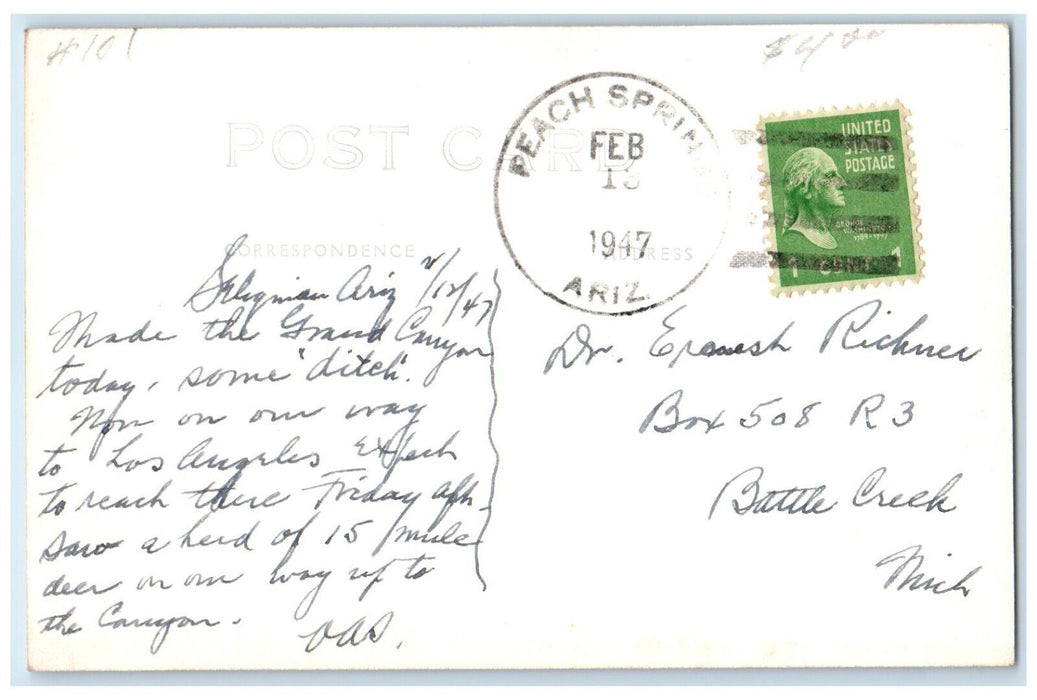 #101
$4.00
POST CARD
PEACH SPRIN
FEB
13
1947
ARIZ.
UNITED
STATES
POSTAGE
GEORGE
WASHINGTON
1789-1797
1 CENT 1
CORRESPONDENCE
ADDRESS
Seligman Ariz 2/12/47
Made the Grand Canyon
today, some "ditch".
Now on our way
to Los Angeles Expect
to reach there Friday aft.
saw a herd of 15 mule
deer on our way up to
the Canyon.
OAS.
Dr. Ernest Richner
Box 508 R3
Battle Creek
Mich